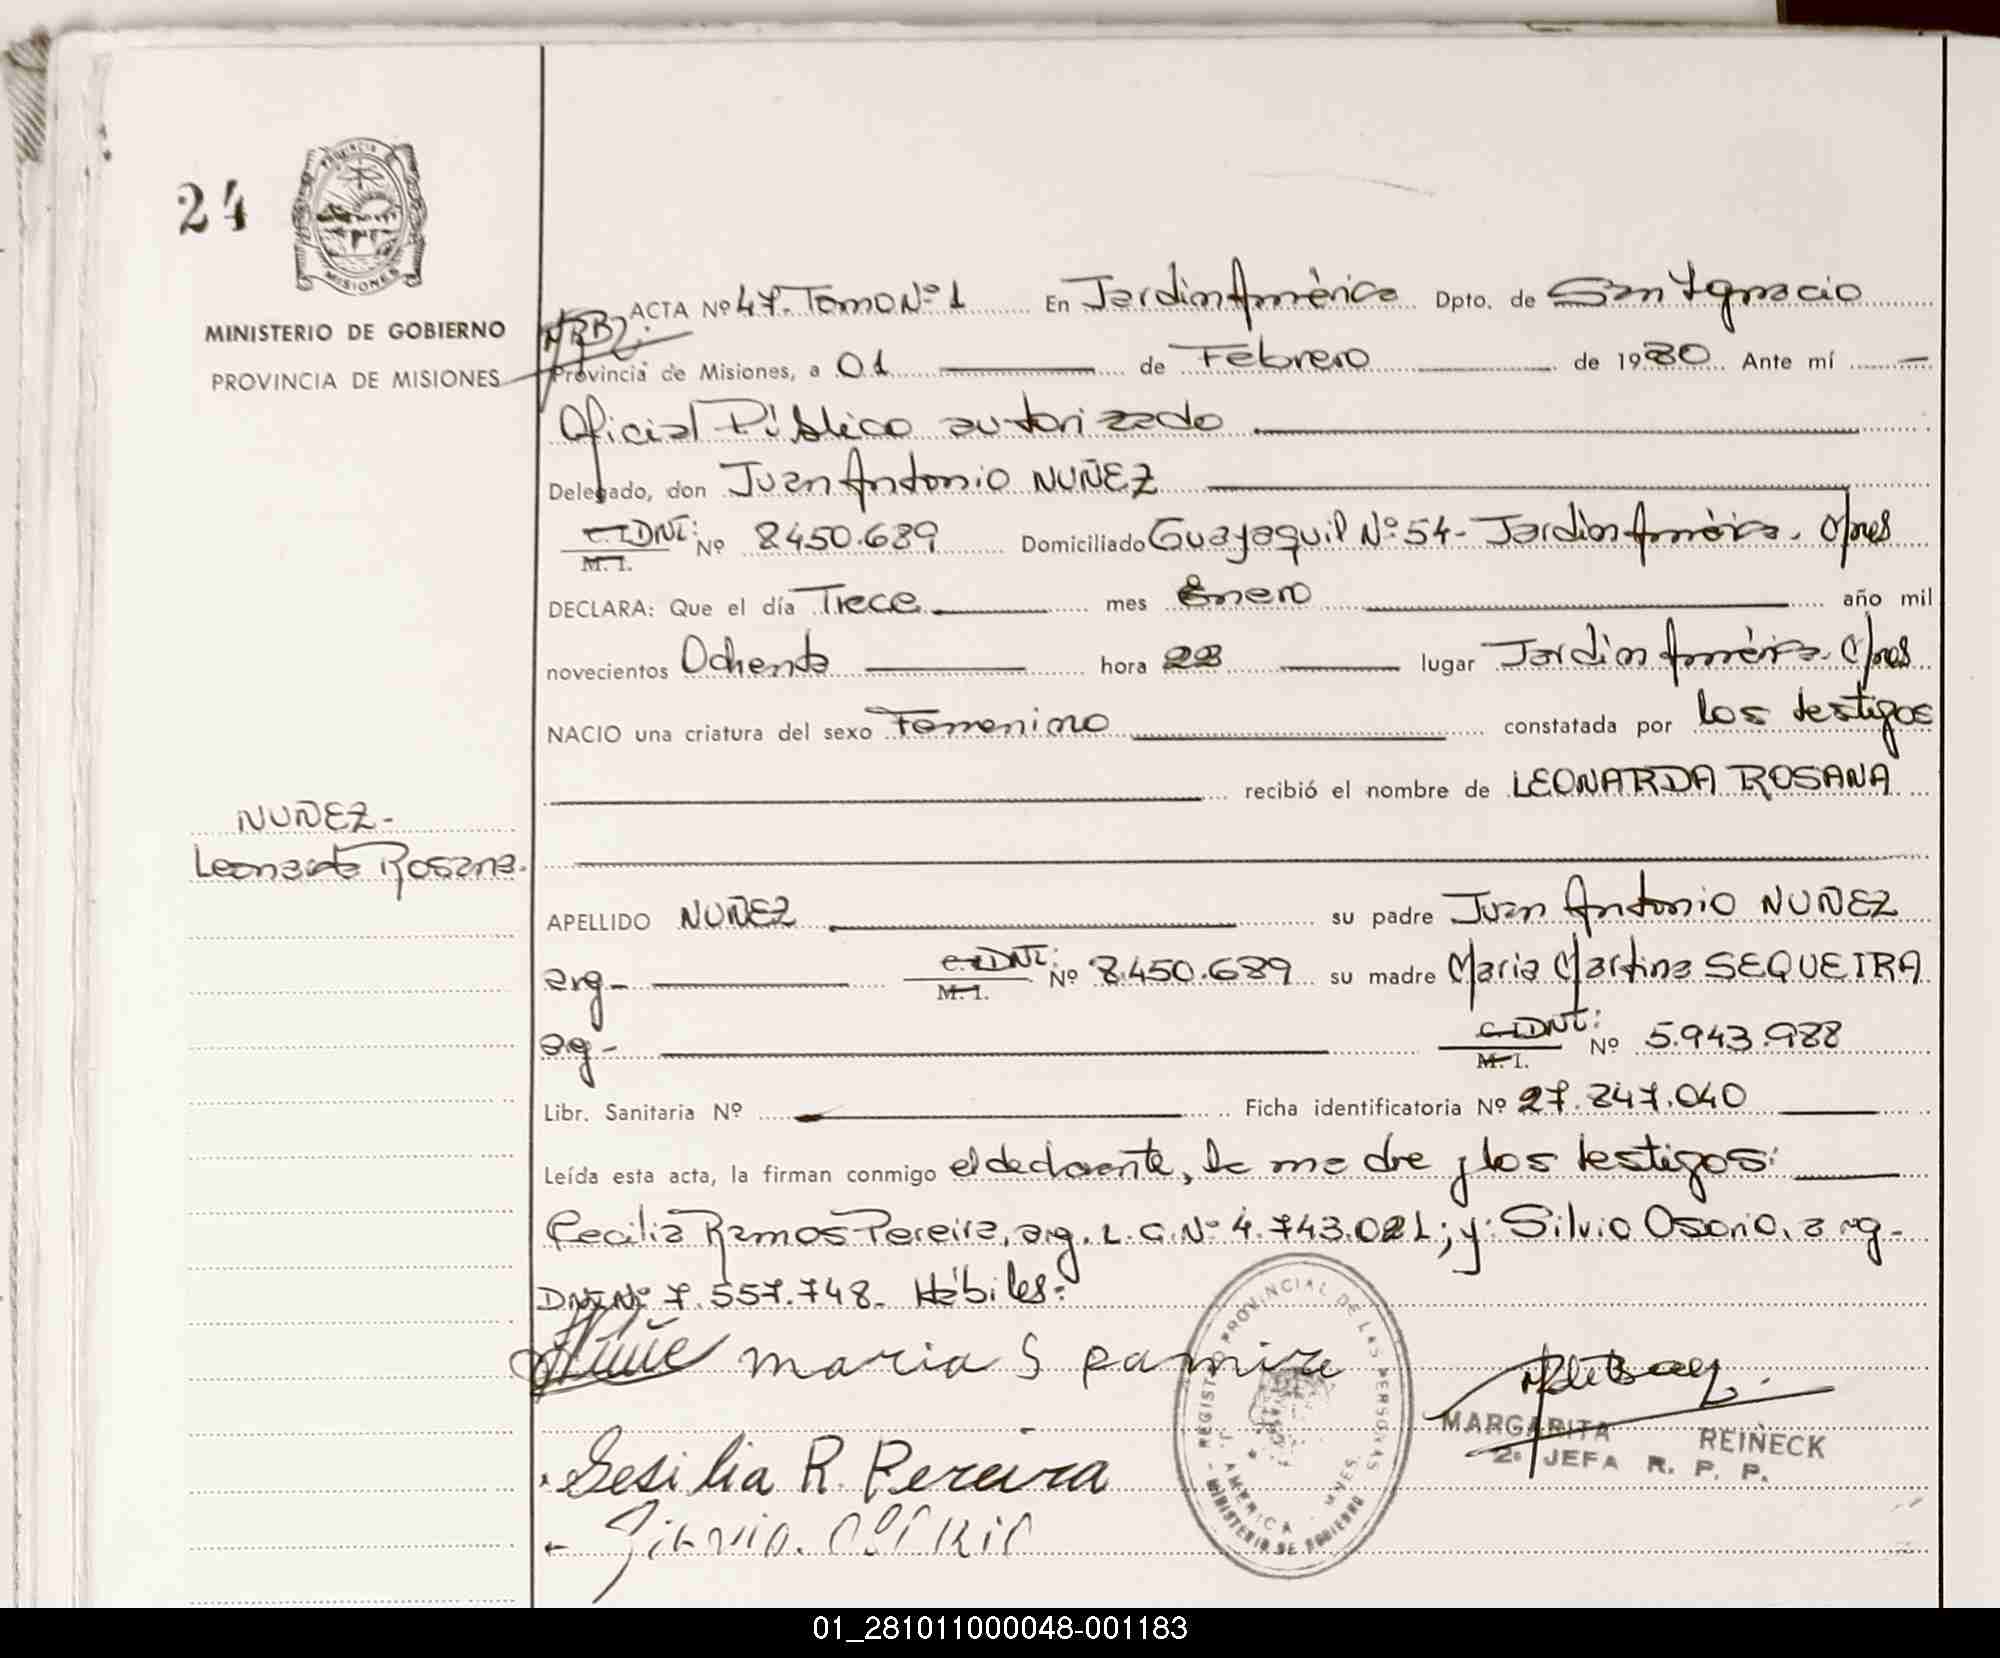 24
PROVINCIA
MISIONES
MINISTERIO DE GOBIERNO
PROVINCIA DE MISIONES
ACTA Nº 47. Tomo Nº 1 En Jardín América Dpto. de San Ignacio
Provincia de Misiones, a 01 de Febrero de 1980 Ante mí
Oficial Público autorizado
Delegado, don Juan Antonio NUÑEZ
C.I. DNI: Nº 8450.689 Domiciliado Guayaquil Nº 54- Jardín América. Mnes
M. I.
DECLARA: Que el día Trece mes Enero año mil
novecientos Ochenta hora 23 lugar Jardín América. Mnes
NACIO una criatura del sexo Femenino constatada por los testigos
recibió el nombre de LEONARDA ROSANA
NUÑEZ-
Leonarda Rosana.
APELLIDO NUÑEZ su padre Juan Antonio NUÑEZ
arg- C.I. DNI: Nº 8.450.689 su madre Maria Martina SEQUEIRA
M. I.
arg- C.I. DNI: Nº 5.943.988
M. I.
Libr. Sanitaria Nº Ficha identificatoria Nº 27.847.040
Leída esta acta, la firman conmigo el declarante, la madre y los testigos:
Cecilia Ramos Pereira, arg. L.C. Nº 4.743.021; y: Silvio Osorio, arg-
DNI Nº 7.557.748- Hábiles:
maria S ramire
Sesilia R. Pereira
REGISTRO PROVINCIAL DE LAS PERSONAS
J. AMERICA - MNES.
MINISTERIO DE GOBIERNO
MARGARITA REINECK
2º JEFA R. P. P.
01_281011000048-001183